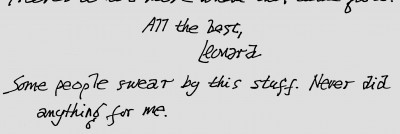 All the best,
Leonard
Some people swear by this stuff. Never did
anything for me.